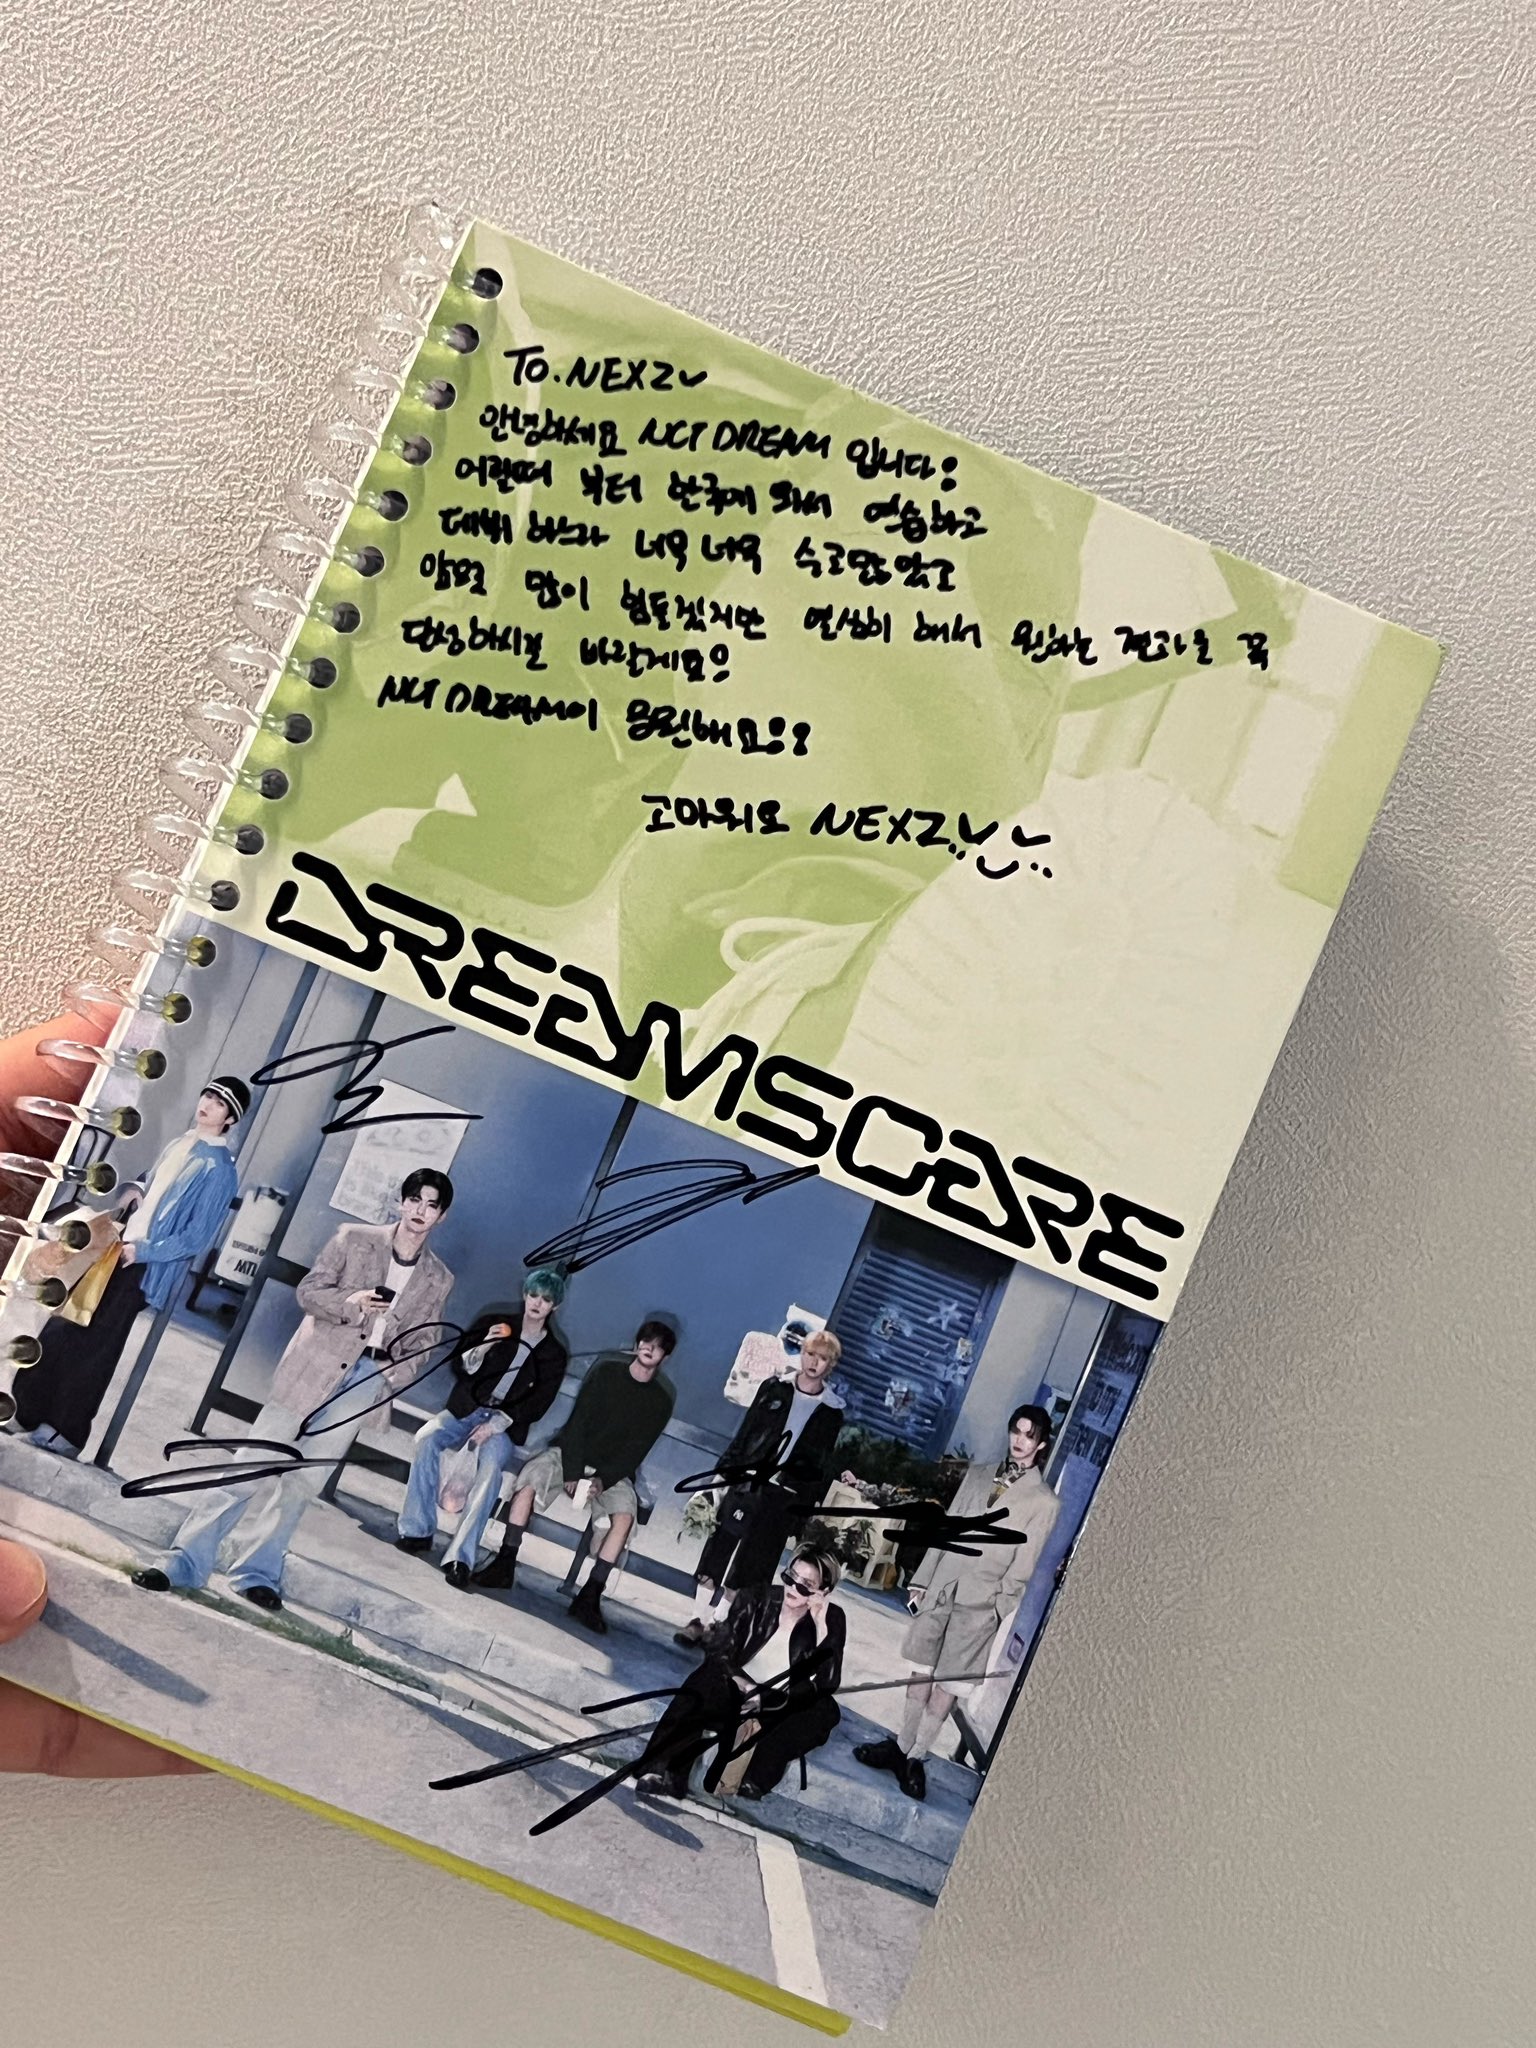 To. NEXZ
안녕하세요 NCT DREAM 입니다!
어릴때 부터 한국에 와서 연습하고
데뷔 하느라 너무 너무 수고많았고
앞으로 많이 힘들겠지만 열심히 해서 원하는 결과를 꼭
달성하시길 바랄게요!
NCT DREAM이 응원해요!!
고마워요 NEXZ
DREAMSCAPE